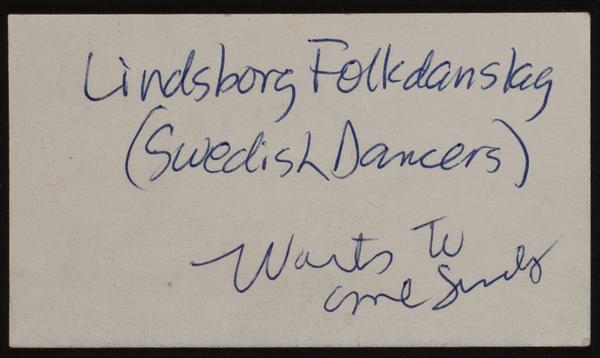 Lindsborg Folkdanslag
(Swedish Dancers)
Wants To